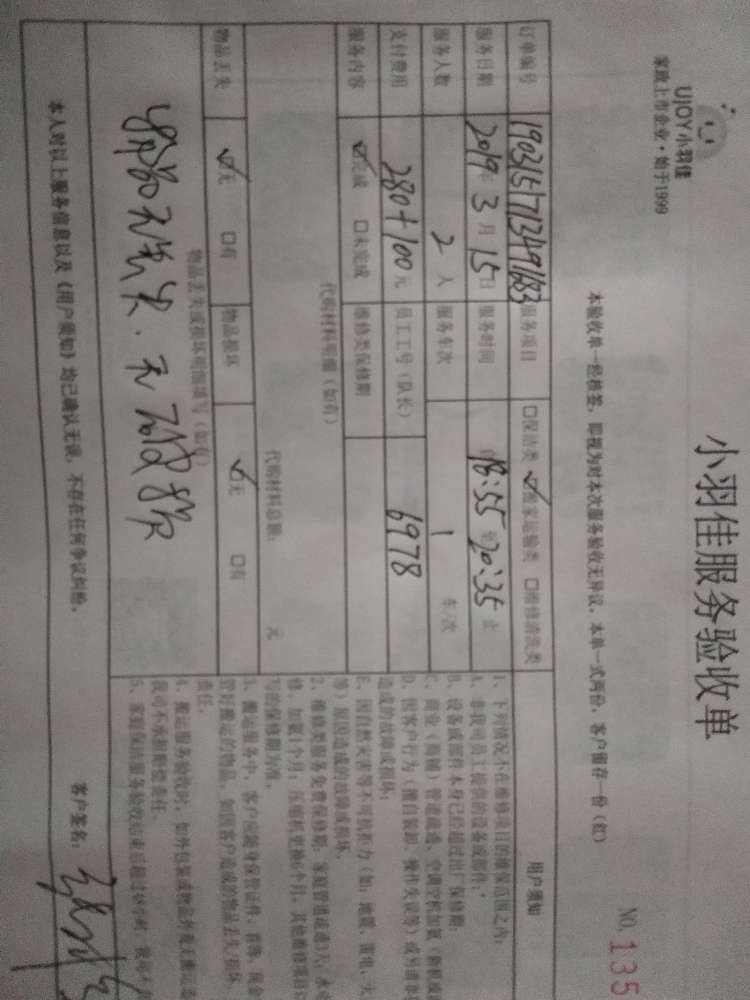 UJOY小羽佳
家政上市企业·始于1999
小羽佳服务验收单
本验收单一经核签，即视为对本次服务验收无异议，本单一式两份，客户留存一份（红）
NO. 135
订单编号 1903151713491683 服务项目 □保洁类 ☑搬家运输类 □维修清洗类
服务日期 2019年3月15日 服务时间 自18:55至20:35止
服务人数 2人 服务车次 1 车/次
支付费用 280+100元 员工工号（队长） 6978
服务内容 ☑完成 □未完成 维修类保修期
代购材料明细（如有）
代购材料总额： 元
物品丢失 ☑无 □有 物品损坏 ☑无 □有
物品丢失或损坏明细填写（如有）
物品无丢失.无破损
用户须知
1、下列情况不在维修项目的维保范围之内：
A、非我司员工提供的设备或部件；
B、设备或部件本身已经超过出厂保修期；
C、商业（商铺）管道疏通、空调空机加氨（新机或
D、因客户行为（擅自装卸、操作失误等）或另请
造成的故障或损坏；
E、因自然灾害等不可抗拒力（如：地震、雷电、火
等）原因造成的故障或损坏。
2、维修类服务免费保修期：家庭管道疏通3天，水
修、加氨1个月，压缩机更换6个月，其他维修项目
写的保修期为准。
3、搬运服务中，客户应随身保管证件、首饰、现金
管好搬运的物品，如因客户造成的物品丢失、损坏，
责任。
4、搬运服务验收时，如外包装或物品外观无搬运
我司不承担赔偿责任。
5、家庭保洁服务验收结束后超过48小时，
本人对以上服务信息以及《用户须知》均已确认无误，不存在任何争议纠纷。
客户签名：